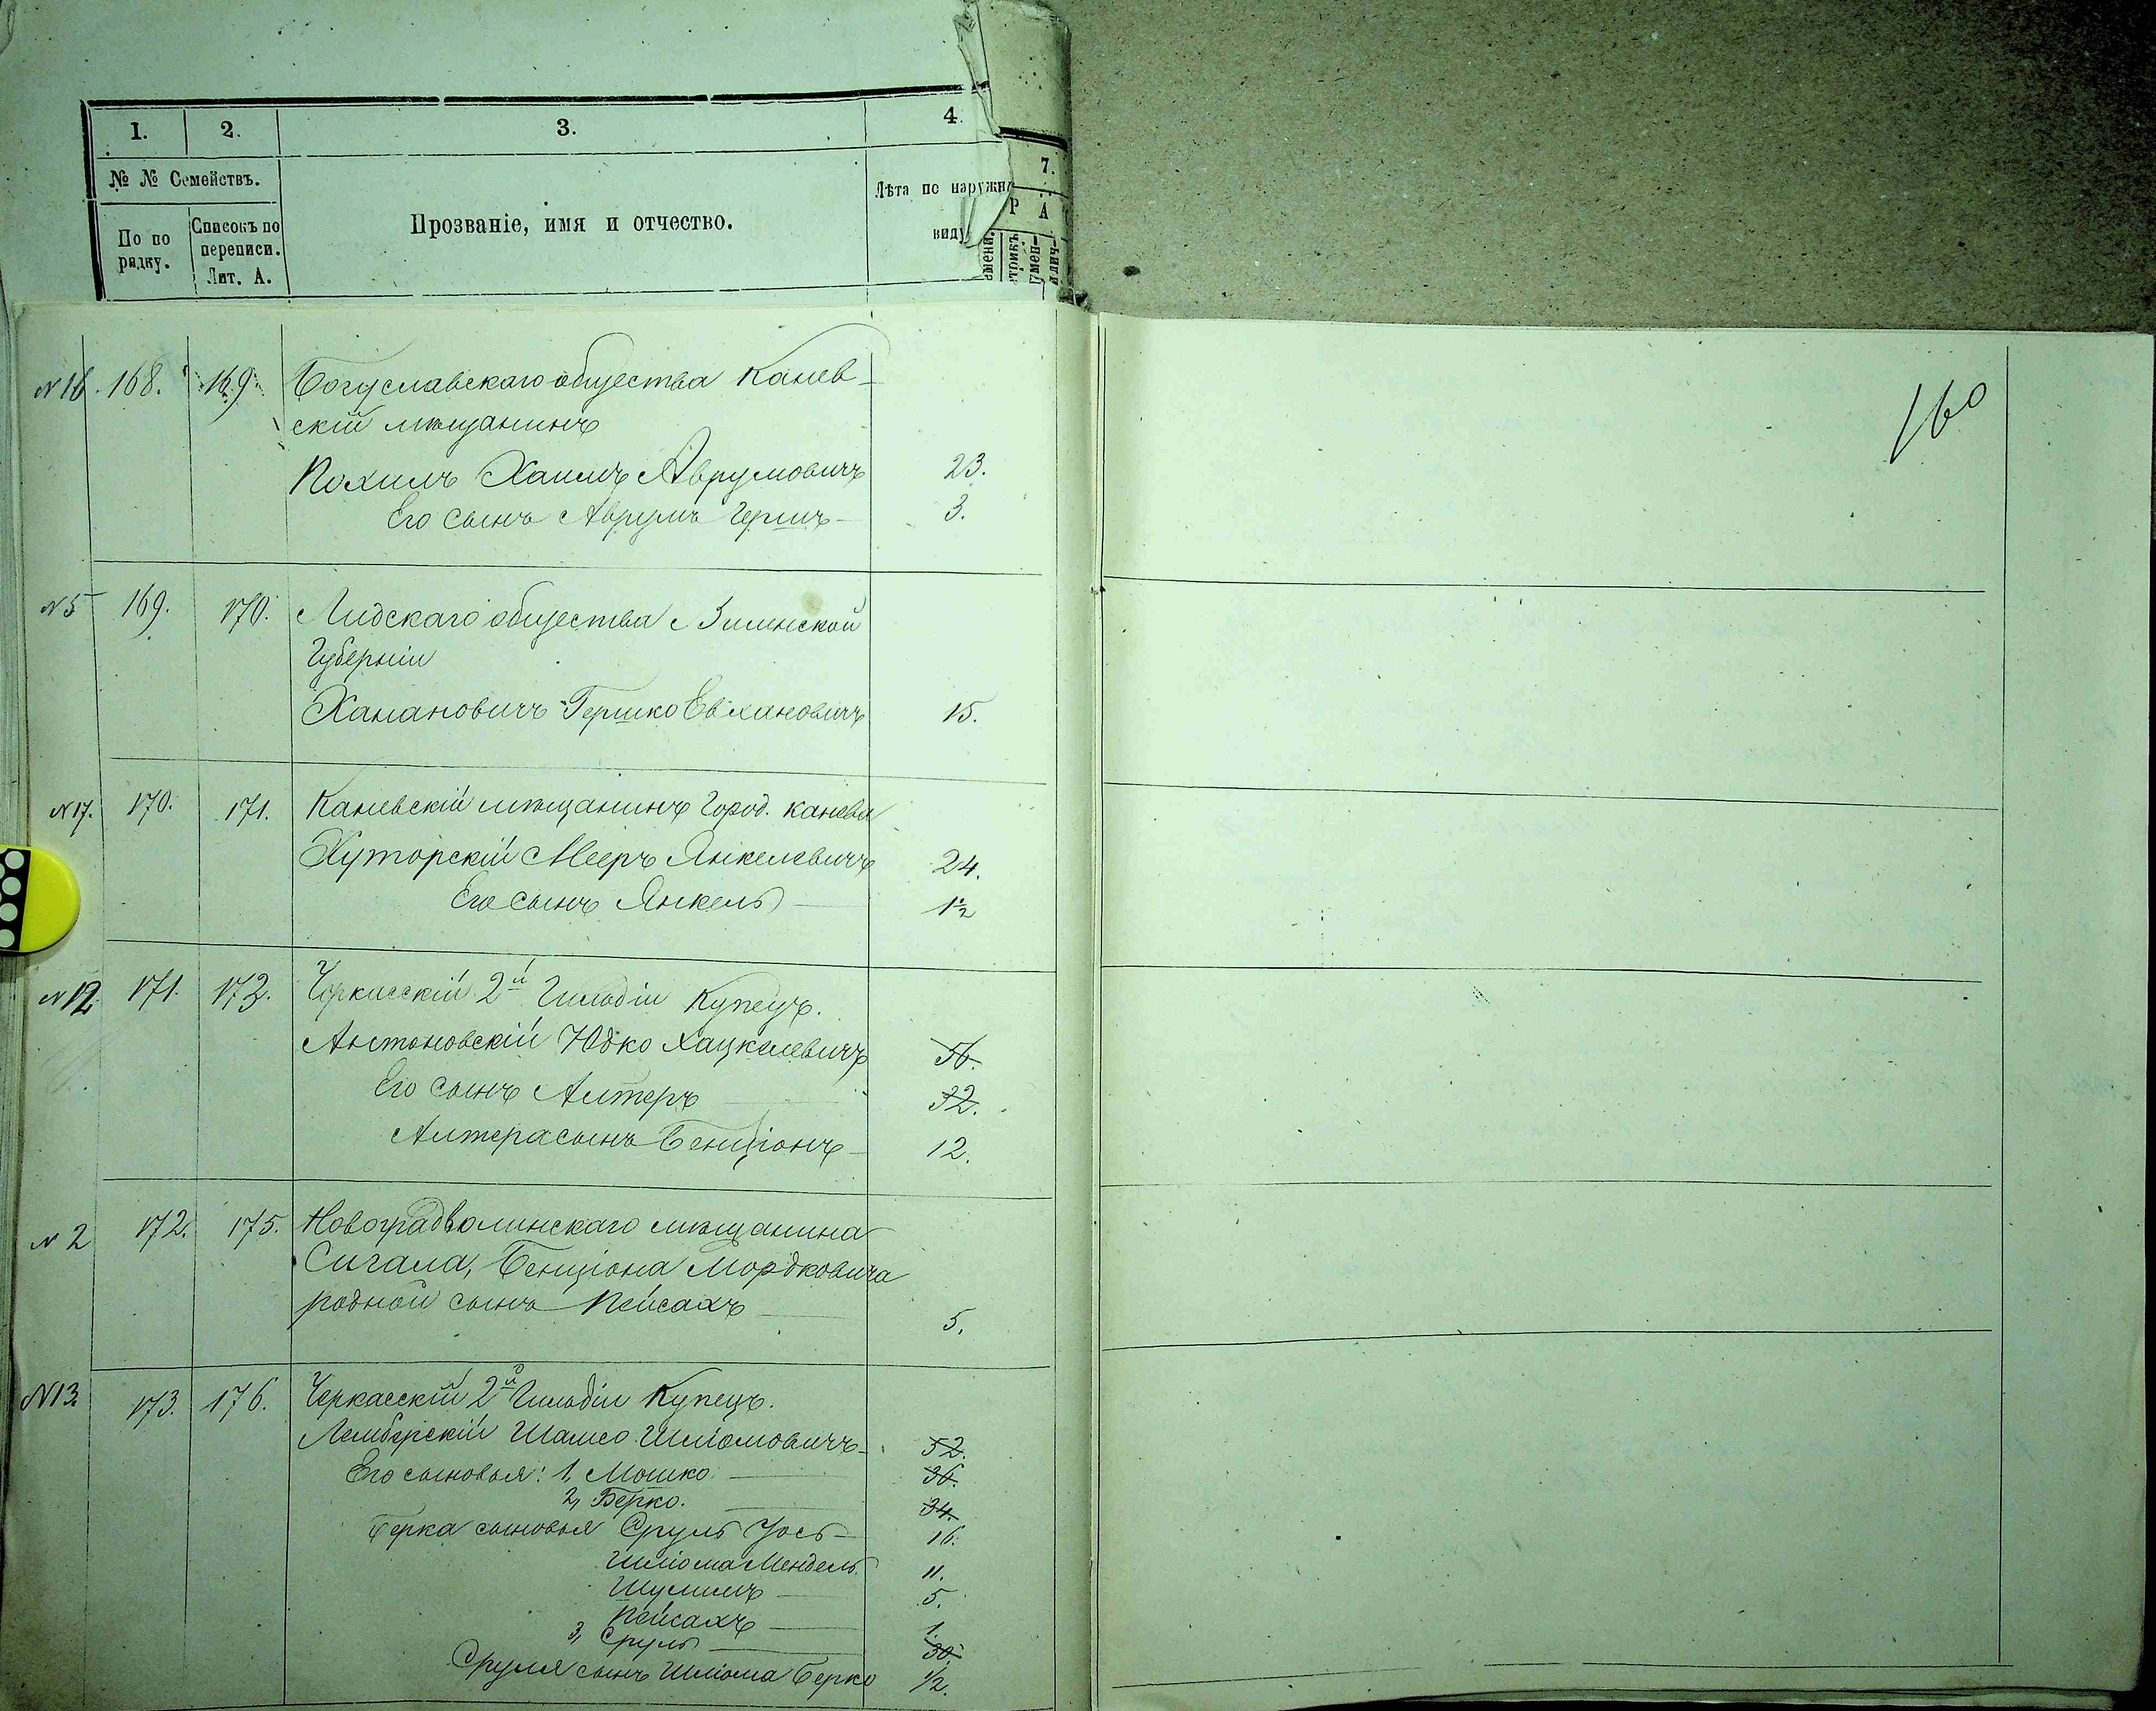 1. 2. 3. 4. 7.
№ № Семействъ.
По по рядку. Списокъ по переписи. Лит. А.
Прозваніе, имя и отчество.
Лѣта по наружн
виду
Р А
160
№ 16. 168. 169. Богуславскаго общества Канев-
скій мѣщанинъ
Похилъ Хаимъ Аврумовичъ 23.
Его сынъ Аврумъ Гершъ 3.
№ 5 169. 170. Лидскаго общества Виленской
Губерніи
Хананович Гершко 15.
№ 17. 170. 171. Каневскій мѣщанинъ город. Канева
Хуторскій Мееръ Янкелевичъ 24.
Его сынъ Янкель 1½
№ 12. 171. 172. Черкасскій 2й Гильдіи Купецъ.
Антоновскій Юдко Хацкелевичъ 56.
Его сынъ Алтеръ 32.
Алтера сынъ Бенціонъ 12.
№ 2 172. 175. Новоградволинскаго мѣщанина
Сигала, Бенціона Мордковича
родной сынъ Пейсахъ 5.
№ 13. 173. 176. Черкасскій 2й Гильдіи Купецъ.
Лембергскій Шліомовичъ 52.
Его сыновья: 1, Мошко 36.
2, Берко. 34.
Берка сыновья Сруль Іось 16.
Шліома Мендель 11.
Шулимъ 5.
Пейсахъ 1.
3, Сруль 30.
Сруля сынъ Шліома Берко 1/2.